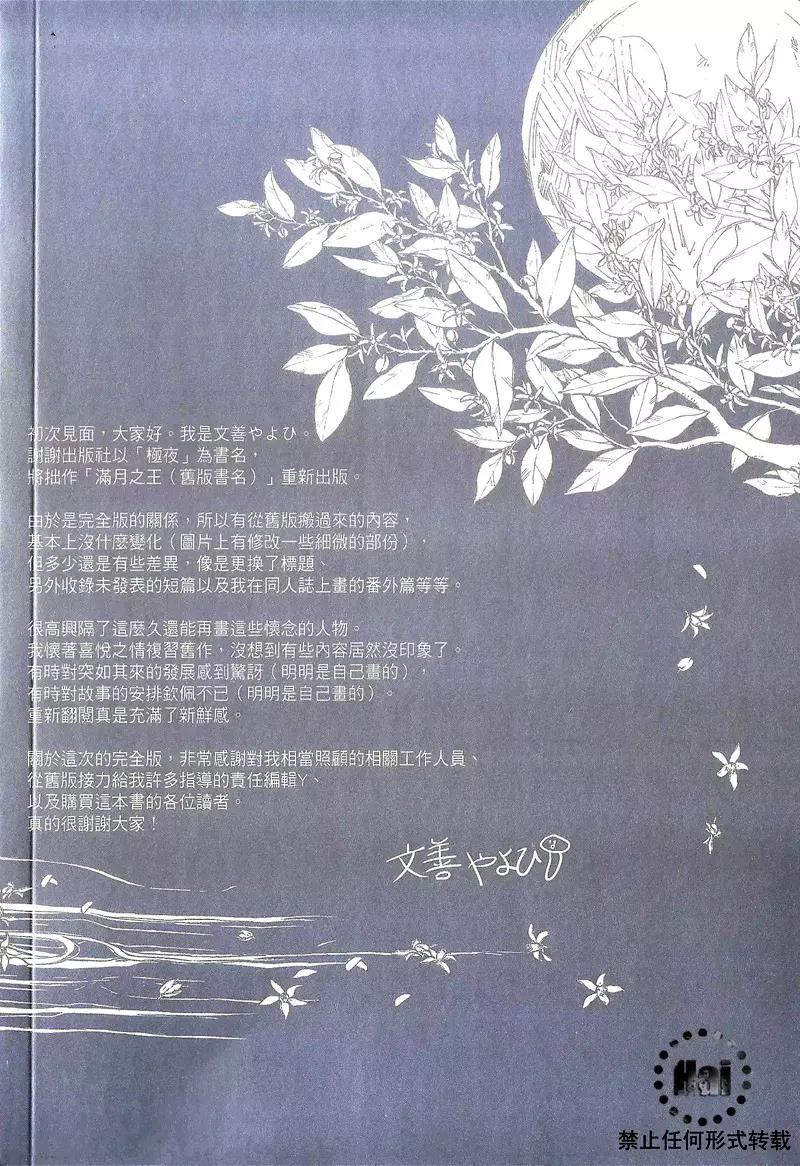 初次見面，大家好。我是文善やよひ。
謝謝出版社以「極夜」為書名，
將拙作「滿月之王（舊版書名）」重新出版。
由於是完全版的關係，所以有從舊版搬過來的內容，
基本上沒什麼變化（圖片上有修改一些細微的部份），
但多少還是有些差異，像是更換了標題、
另外收錄未發表的短篇以及我在同人誌上畫的番外篇等等。
很高興隔了這麼久還能再畫這些懷念的人物。
我懷著喜悅之情複習舊作，沒想到有些內容居然沒印象了。
有時對突如其來的發展感到驚訝（明明是自己畫的），
有時對故事的安排欽佩不已（明明是自己畫的）。
重新翻閱真是充滿了新鮮感。
關於這次的完全版，非常感謝對我相當照顧的相關工作人員、
從舊版接力給我許多指導的責任編輯Y、
以及購買這本書的各位讀者。
真的很謝謝大家！
文善やよひ
Hai
禁止任何形式转载